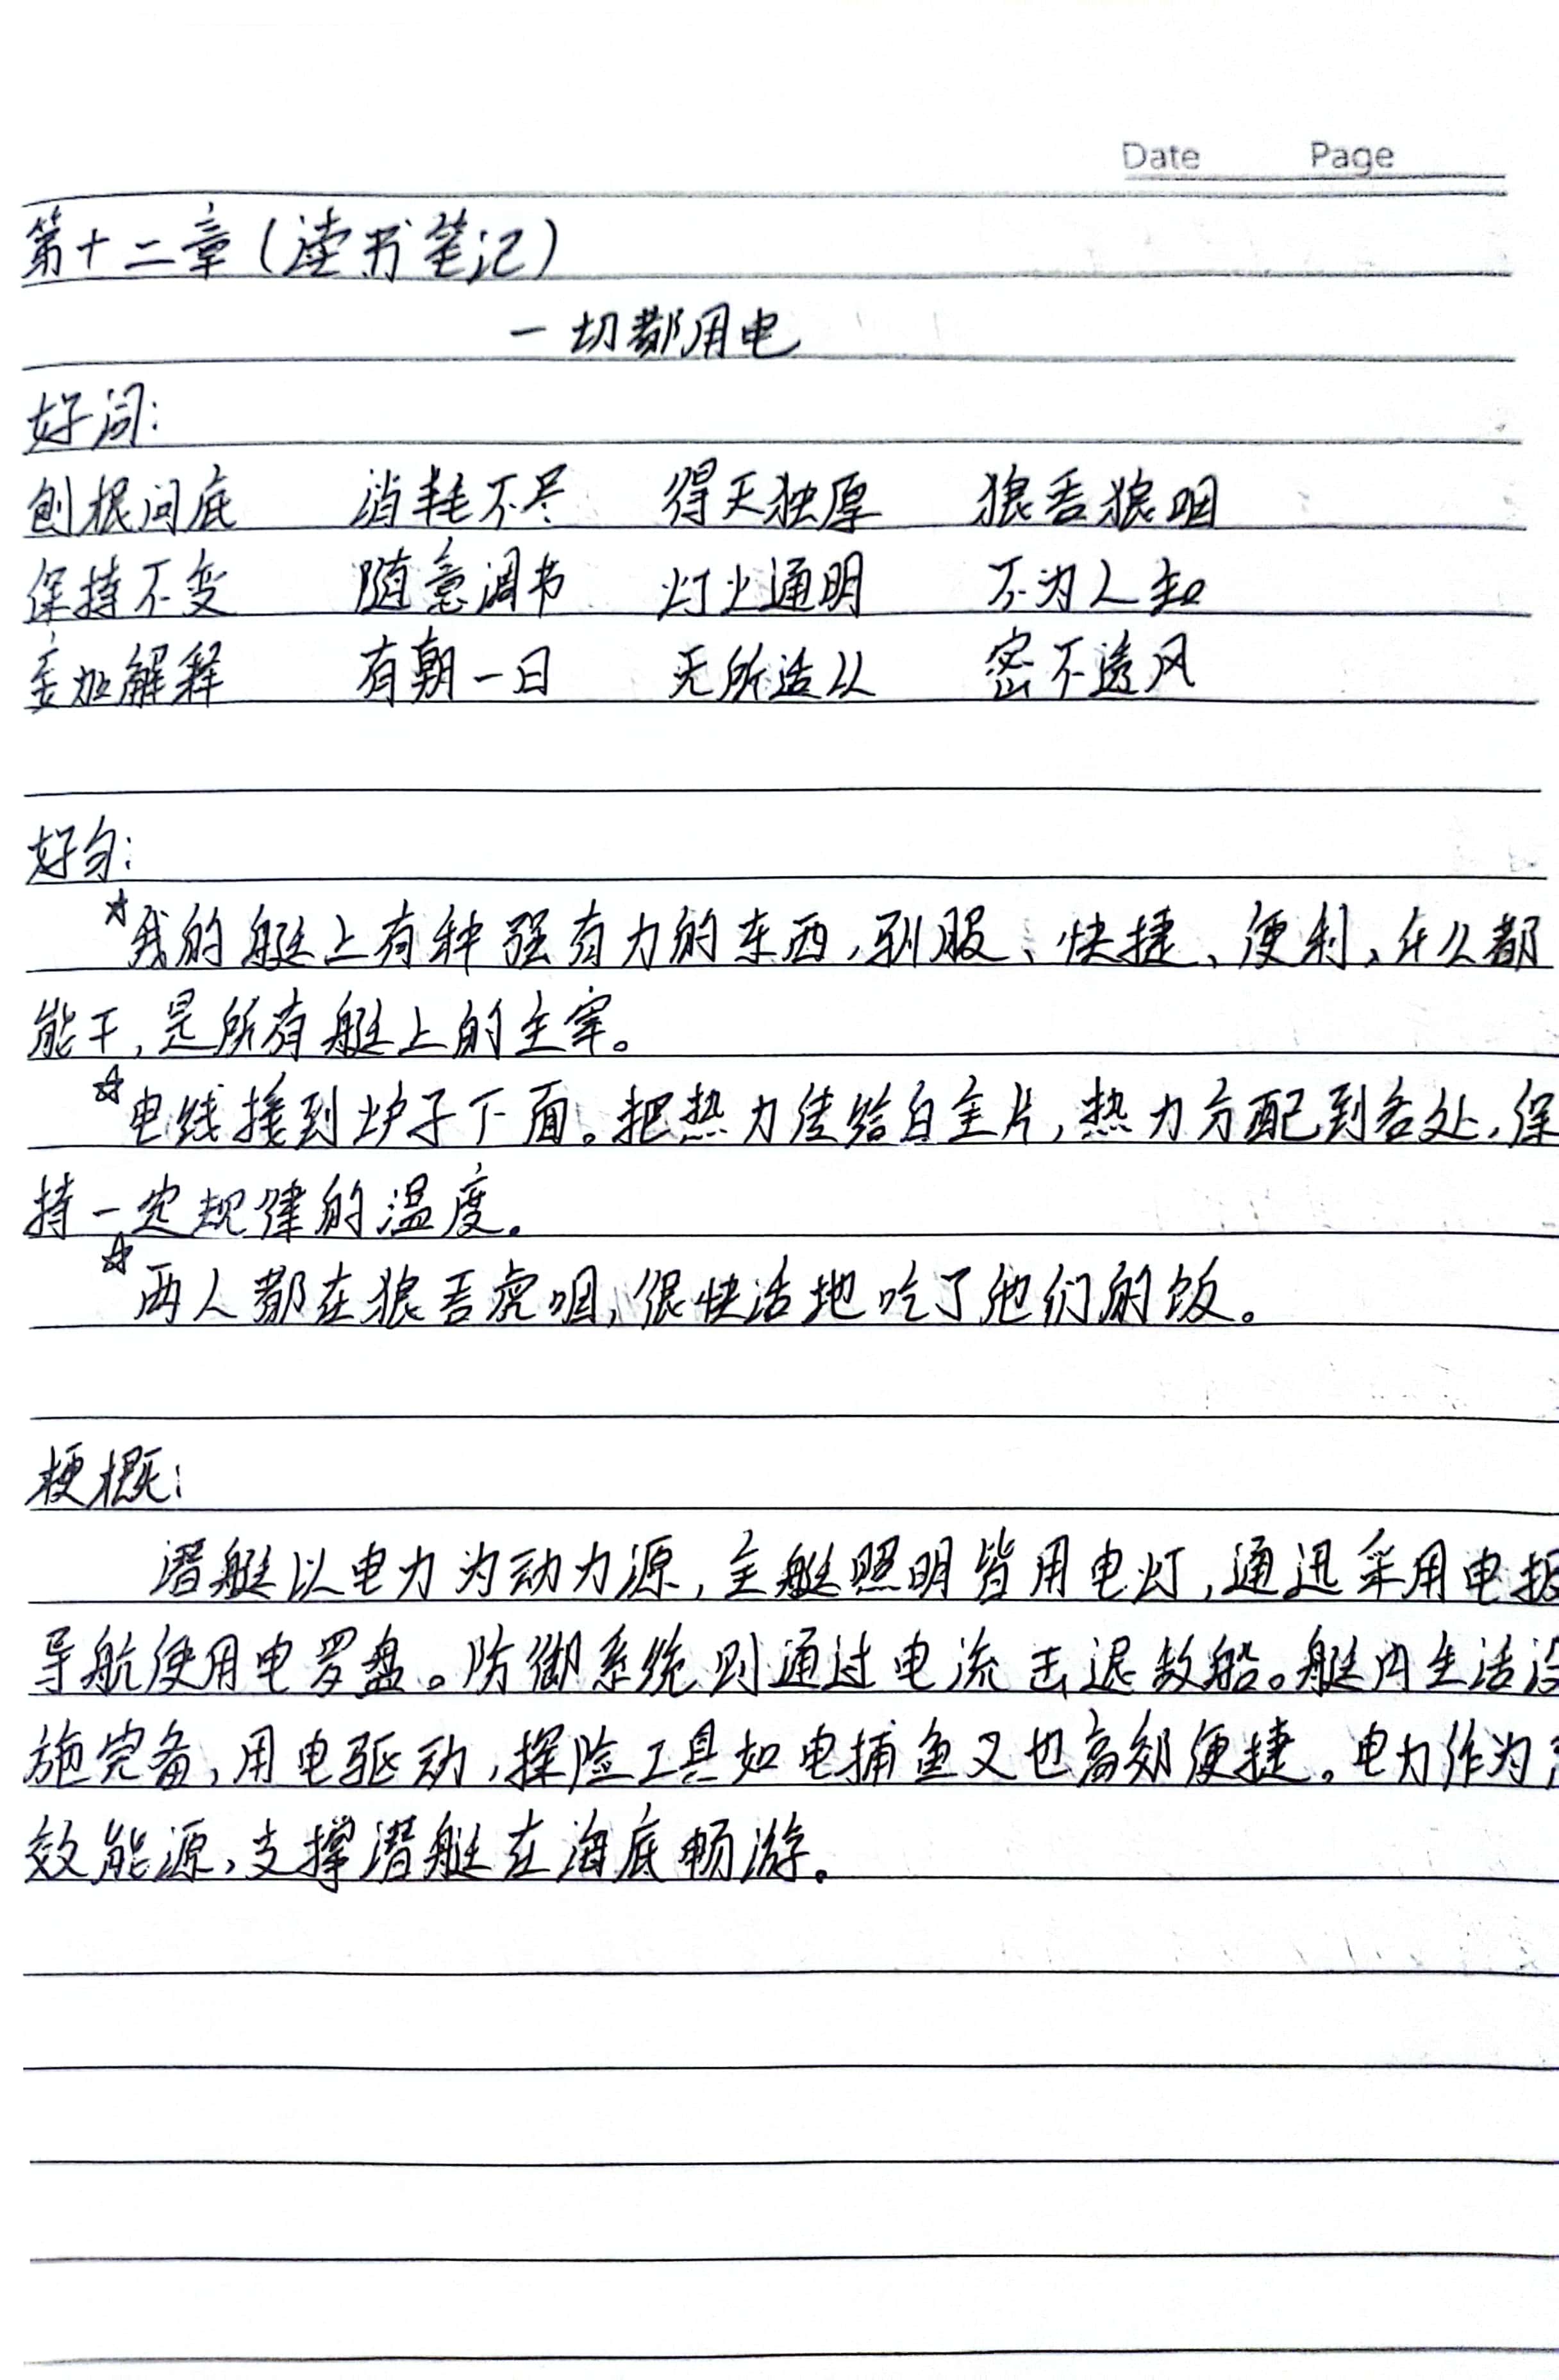 Date Page
第十二章(读书笔记)
一切都用电
好词:
刨根问底 消耗不尽 得天独厚 狼吞狼咽
保持不变 随意调节 灯火通明 不为人知
妄加解释 有朝一日 无所适从 密不透风
好句:
☆我的艇上有种强有力的东西,驯服、快捷、便利、什么都
能干,是所有艇上的主宰。
☆电线接到炉子下面。把热力传给白金片,热力分配到各处,保
持一定规律的温度。
☆两人都在狼吞虎咽,很快活地吃了他们的饭。
梗概:
潜艇以电力为动力源,全艇照明皆用电灯,通迅采用电报
导航使用电罗盘。防御系统则通过电流击退敌船。艇内生活设
施完备,用电驱动,探险工具如电捕鱼叉也高效便捷。电力作为
效能源,支撑潜艇在海底畅游。